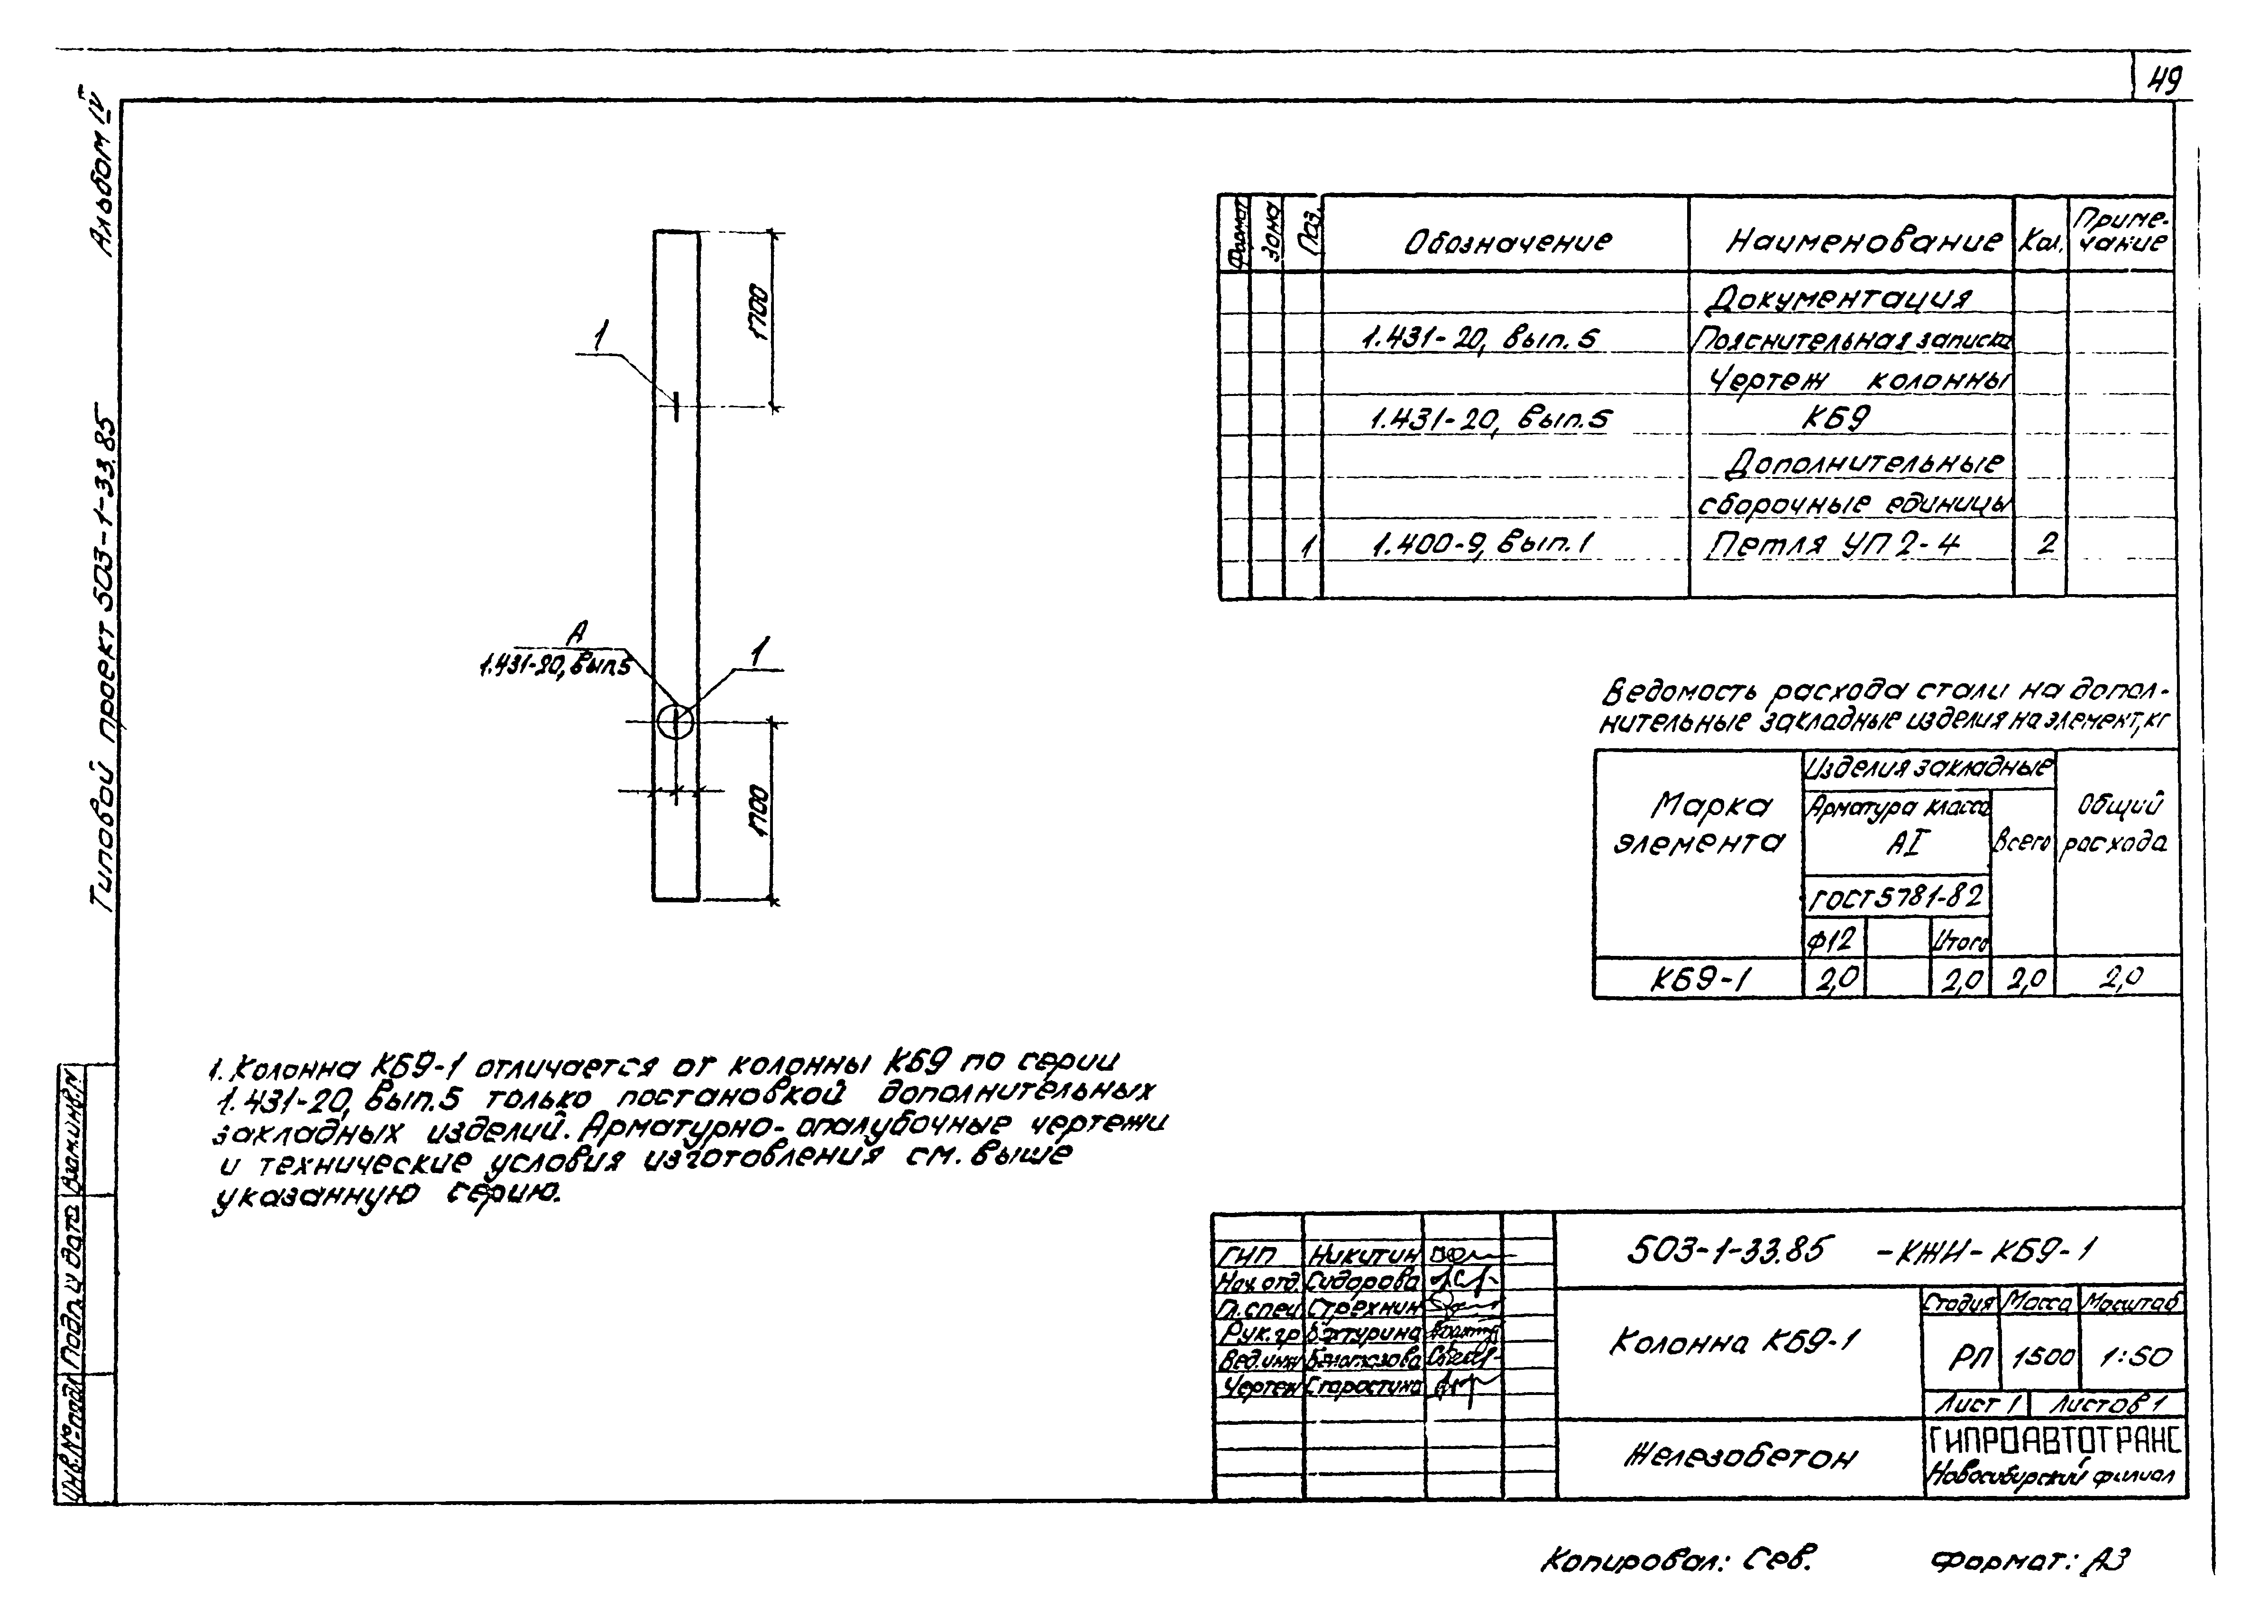 49
Альбом IV
Типовой проект 503-1-33.85
Взам.инв.N
Подп. и дата
Инв.№подл
1
1700
А
1.431-20, вып.5
1
1700
Формат Зона Поз. Обозначение Наименование Кол. Приме-
чание
Документация
1.431-20, вып. 5 Пояснительная записка
Чертеж колонны
1.431-20, вып.5 КБ9
Дополнительные
сборочные единицы
1 1.400-9, вып.1 Петля УП2-4 2
Ведомость расхода стали на допол-
нительные закладные изделия на элемент, кг
Марка
элемента
Изделия закладные
Арматура класса
АI
ГОСТ5781-82
Ф12 Итого
Всего
Общий
расхода
КБ9-1 2,0 2,0 2,0 2,0
1. Колонна КБ9-1 отличается от колонны КБ9 по серии
1.431-20, вып.5 только постановкой дополнительных
закладных изделий. Арматурно-опалубочные чертежи
и технические условия изготовления см. выше
указанную серию.
ГИП Никитин
Нач.отд. Сидорова
Гл.спец Стрехнин
Рук.гр Бахтурина
Вед.инж
Чертеж Старостина
503-1-33.85 -КЖИ-КБ9-1
Колонна КБ9-1
Стадия Масса Масштаб
РП 1500 1:50
Лист 1 Листов 1
Железобетон
ГИПРОАВТОТРАНС
Новосибирский филиал
Копировал: Сев. Формат: А3